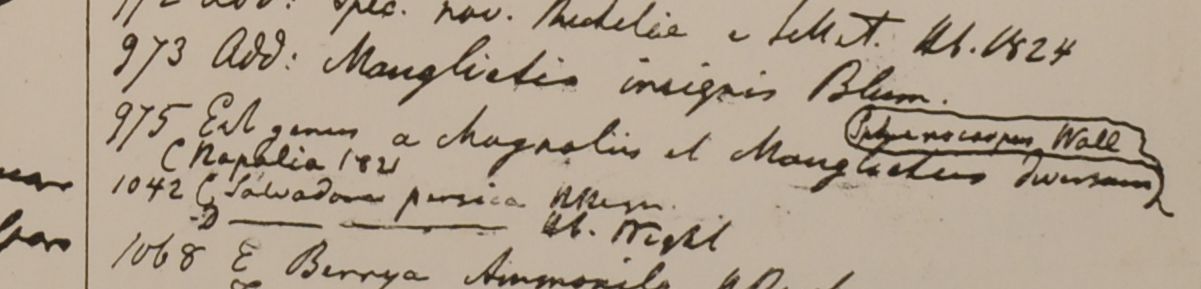 972 Add: Spec. nov. Micheliae e Sillet. Hb. 1824
973 Add: Manglietia insignis Blum.
975 Est genus a Magnoliis et Manglietiis diversum
Sphenocarpus Wall
(Napalia 1821
1042 C Salvadora persica
D Hb. Wight
1068 E Berrya Ammonilla